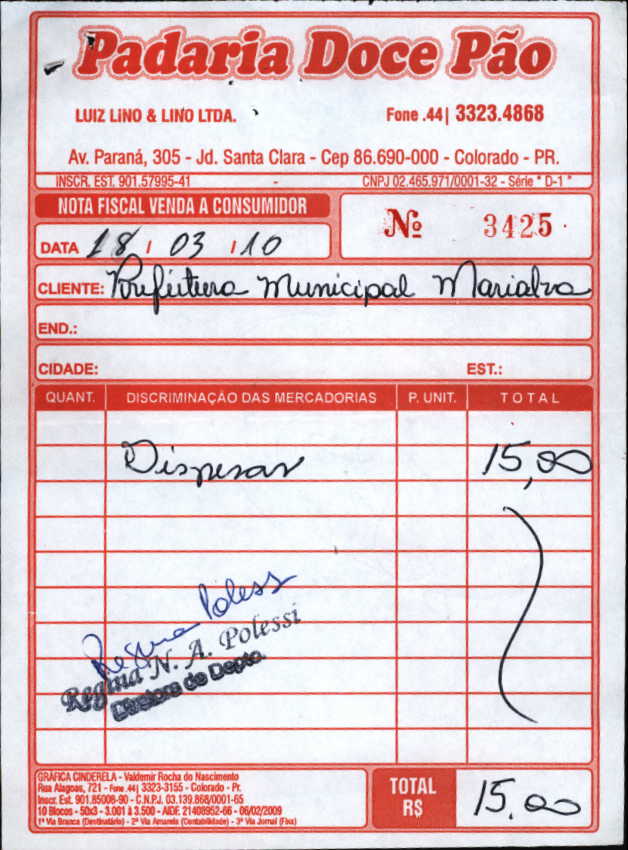 Padaria Doce Pão
LUIZ LINO & LINO LTDA. Fone .44| 3323.4868
Av. Paraná, 305 - Jd. Santa Clara - Cep 86.690-000 - Colorado - PR.
INSCR. EST. 901.57995-41 CNPJ 02.465.971/0001-32 - Série " D-1 "
NOTA FISCAL VENDA A CONSUMIDOR
Nº 3425
DATA 18 / 03 / 10
CLIENTE: Prefeitura Municipal Marialva
END.:
CIDADE: EST.:
QUANT. DISCRIMINAÇÃO DAS MERCADORIAS P. UNIT. TOTAL
Dispesas 15,00
Regina Polessi
Regina N. A. Polessi
Diretora de Depto.
GRÁFICA CINDERELA - Valdemir Rocha do Nascimento
Rua Alagoas, 721 - Fone .44| 3323-3155 - Colorado - Pr.
Inscr. Est. 901.85008-90 - C.N.P.J. 03.139.868/0001-65
10 Blocos - 50x3 - 3.001 à 3.500 - AIDF. 21408952-66 - 06/02/2009
1ª Via Branca (Destinatário) - 2ª Via Amarela (Contabilidade) - 3ª Via Jornal (Fixa)
TOTAL R$ 15,00